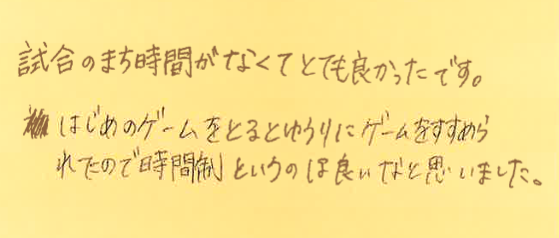 試合のまち時間がなくてとても良かったです。
はじめのゲームをとるとゆうりにゲームをすすめら
れたので時間制というのは良いなと思いました。